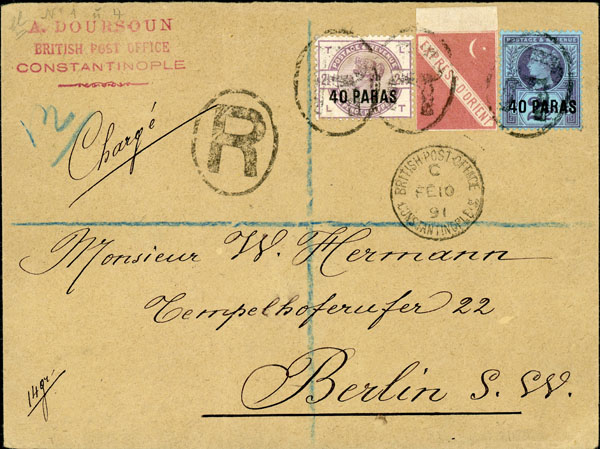 Nº 1 à 4
A. DOURSOUN
BRITISH POST OFFICE
CONSTANTINOPLE
12
Chargé
R
POSTAGE & REVENUE
L T
40 PARAS
L T
EXPRESS D'ORIENT
POSTAGE & REVENUE
40 PARAS
BRITISH·POST·OFFICE
C
FE 10
91
CONSTANTINOPLE
Monsieur W. Hermann
Tempelhoferufer 22
Berlin S. W.
14gr